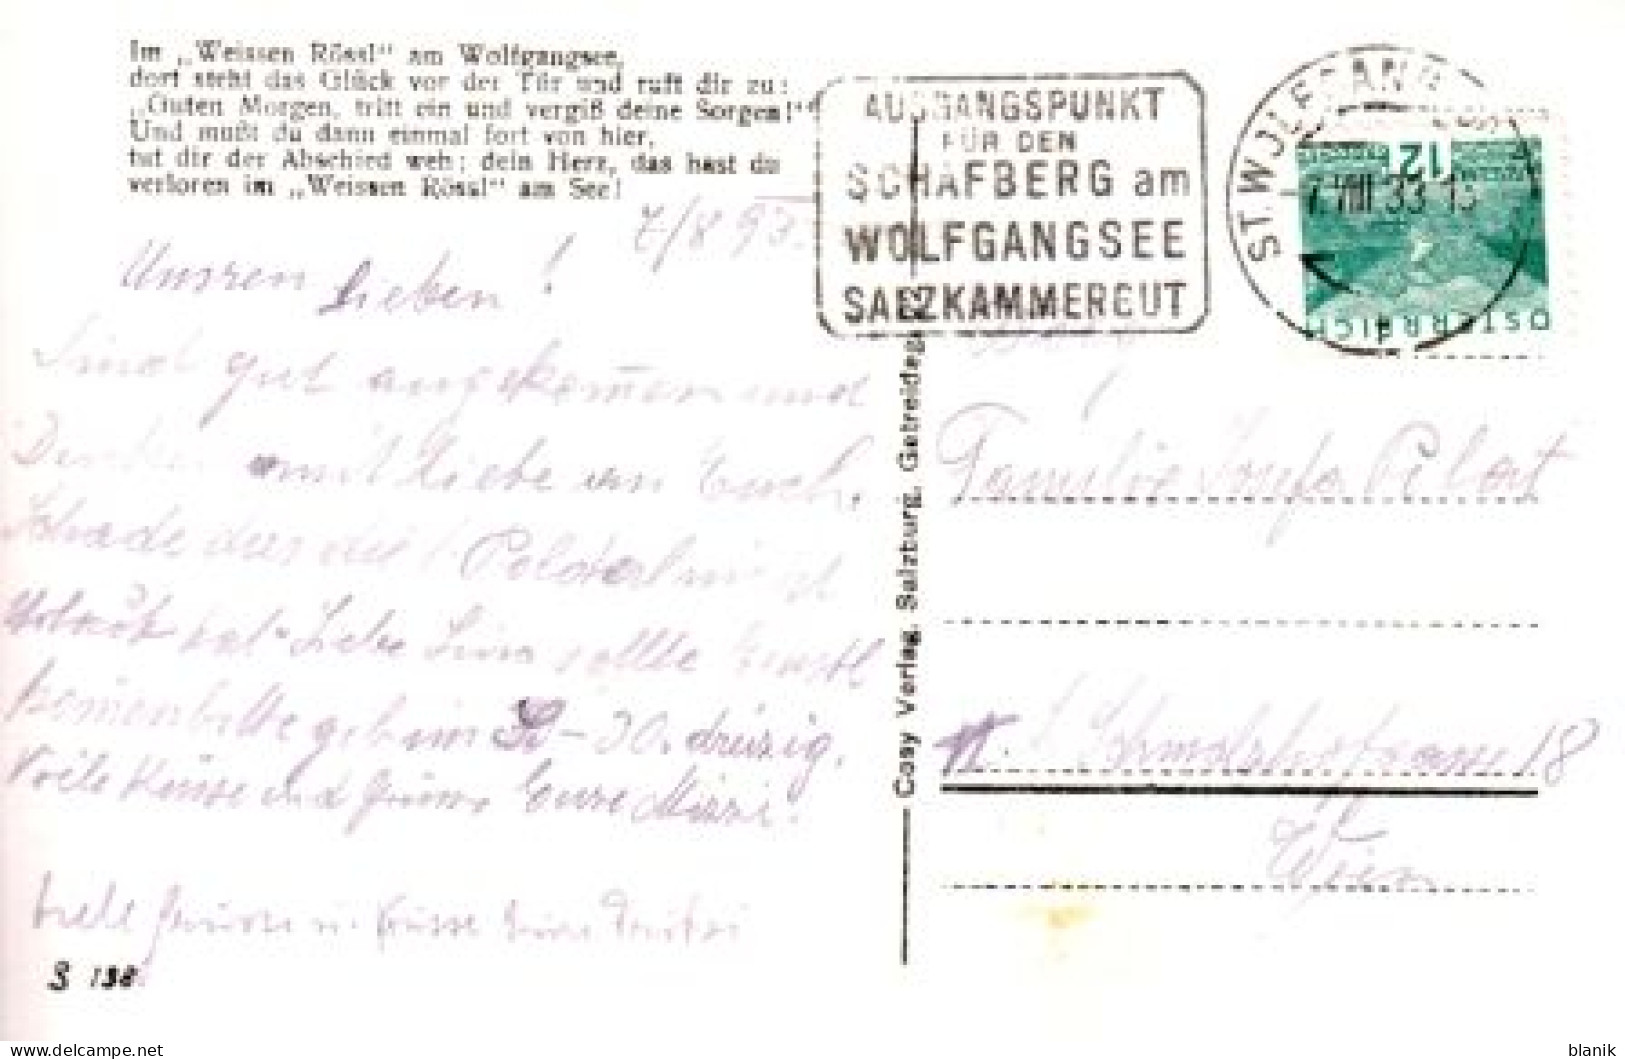 Im „Weissen Rössl“ am Wolfgangsee,
dort steht das Glück vor der Tür und ruft dir zu:
„Guten Morgen, tritt ein und vergiß deine Sorgen!“
Und mußt du dann einmal fort von hier,
tut dir der Abschied weh; dein Herz, das hast du
verloren im „Weissen Rössl“ am See!
AUSGANGSPUNKT
FÜR DEN
SCHAFBERG am
WOLFGANGSEE
SALZKAMMERGUT
ST. WOLFGANG
7.VIII.33
12
ÖSTERREICH
7/8 93.
Unsren Lieben!
Sind gut angekom̅en und
Denken mit Liebe an Euch.
Schade das die nicht
hat. Liebe sollte
kom̅en bitte geb im 30. dreizig.
Viele Küsse und Eure Mizzi.
Viele Grüsse u. Küsse
S 138
Cosy Verlag, Salzburg, Getreideg
Familie Josefa
18
Wien
delcampe.net
blanik